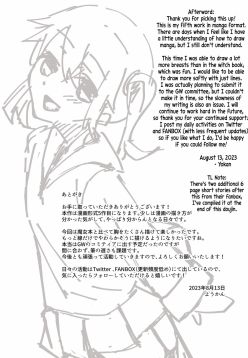 Afterword:
Thank you for picking this up!
This is my fifth work in manga format.
There are days when I feel like I have
a little understanding of how to draw
manga, but I still don't understand.
This time I was able to draw a lot
more breasts than in the witch book,
which was fun. I would like to be able
to draw more softly with just lines.
I was actually planning to submit it
to the GW committee, but I couldn't
make it in time, so the slowness of
my writing is also an issue. I will
continue to work hard in the future,
so thank you for your continued support.
I post my daily activities on Twitter
and FANBOX (with less frequent updates)
so if you like what I do, I'd be happy
if you could follow me!
August 13, 2023
- Yokan
TL Note:
There's two additional 6
page short stories after
this from their Fanbox,
I've compiled it at the
end of this doujin.
あとがき
お手に取っていただきありがとうございます！
本作は漫画形式5作目になります。少しは漫画の描き方が
分かった気がして、やっぱり分からんとなる日々です。
今回は魔女本と比べて胸をたくさん描けて楽しかったです。
もっと線だけでやわらかそうに描けるようになりたいですね。
本当はGWのコミティアに出す予定だったのですが
間に合わず、筆の遅さも課題です。
今後とも頑張って活動していきますので、よろしくお願いします！
日々の活動はTwitter、FANBOX(更新頻度低め)にて出しているので、
気に入ったらフォローしていただけると嬉しいです！
2023年8月13日
ようかん